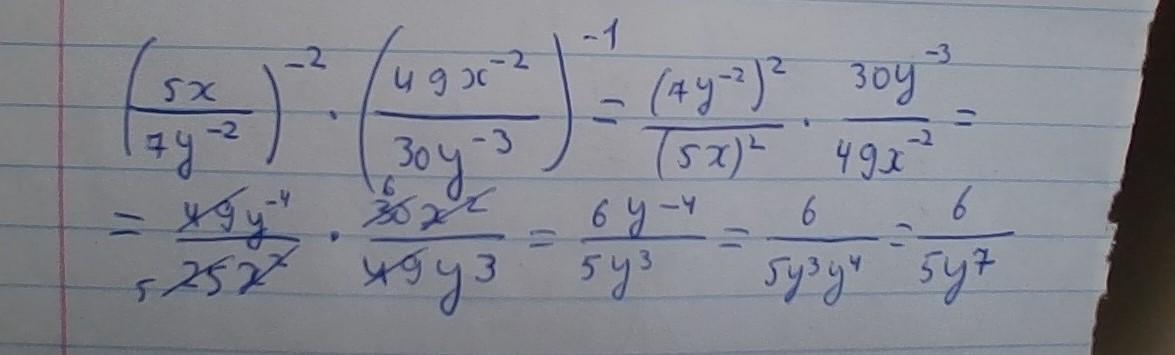 (5x / 7y⁻²)⁻² · (49x⁻² / 30y⁻³)⁻¹ = (7y⁻²)² / (5x)² · 30y⁻³ / 49x⁻² =
= 49y⁻⁴ / 5 25x² · 6 30x² / 49y3 = 6y⁻⁴ / 5y³ = 6 / 5y³y⁴ = 6 / 5y⁷